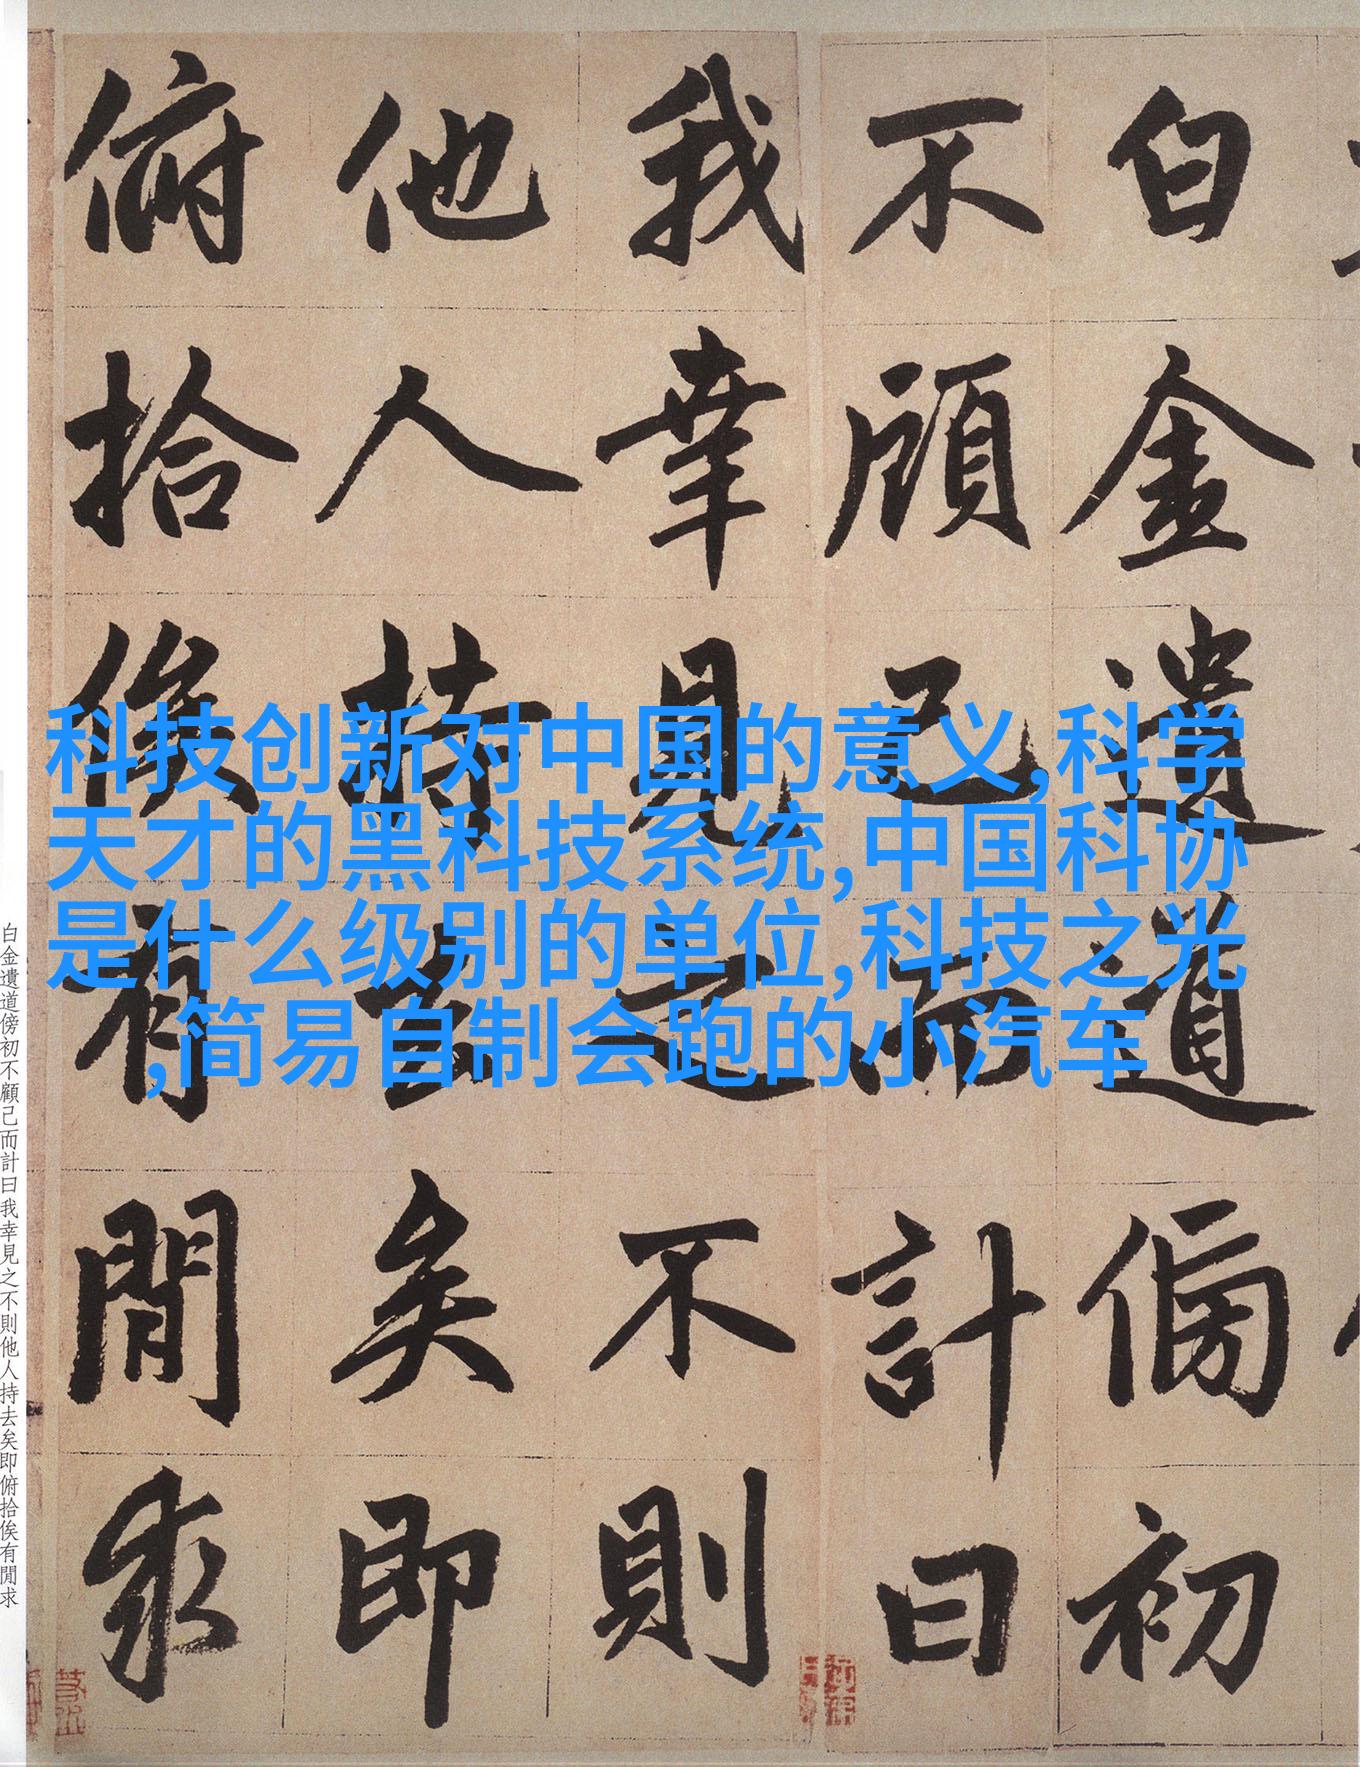 白金遺道傍初
不顧己而計曰
我幸見之不則
他人持去矣即
俯拾俟有閒求
科技创新对中国的意义,科学
天才的黑科技系统,中国科协
是什么级别的单位,科技之光
,简易自制会跑的小汽车
白金遺道傍初不顧己而計曰我幸見之不則他人持去矣即俯拾俟有閒求